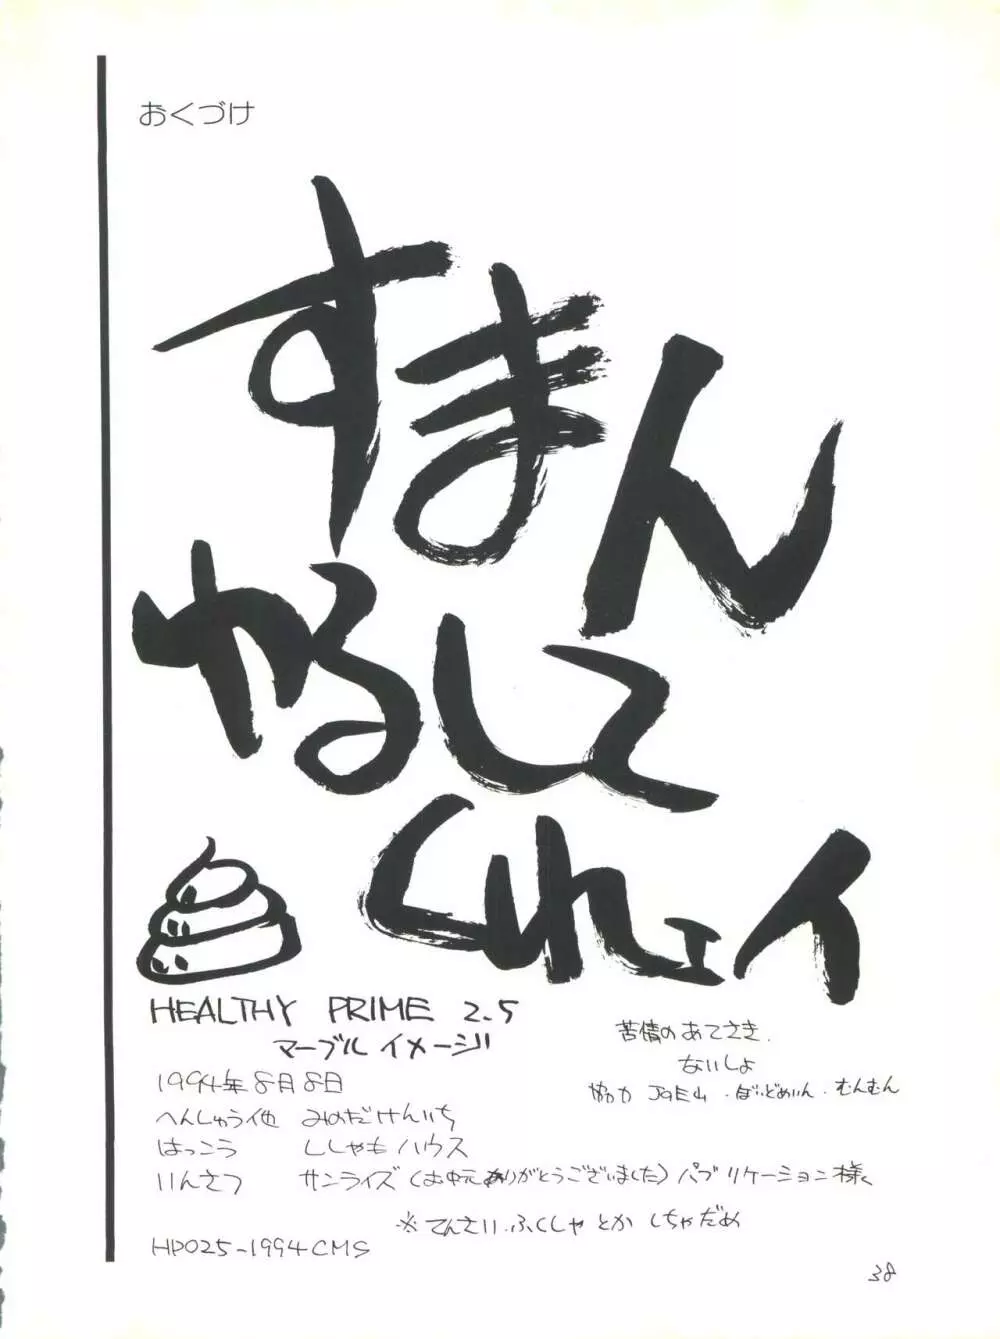 おくづけ
すまん
ゆるして
くれェイ
HEALTHY PRIME 2.5
マーブルイメージ
苦情のあてさき.
ないしょ
1994年8月8日
へんしゅう他 みのだけんいち
はっこう ししゃもハウス
いんさつ サンライズ(お中元ありがとうございました)パブリケーション様
※てんさい.ふくしゃとかしちゃだめ
HP025-1994CMS
38